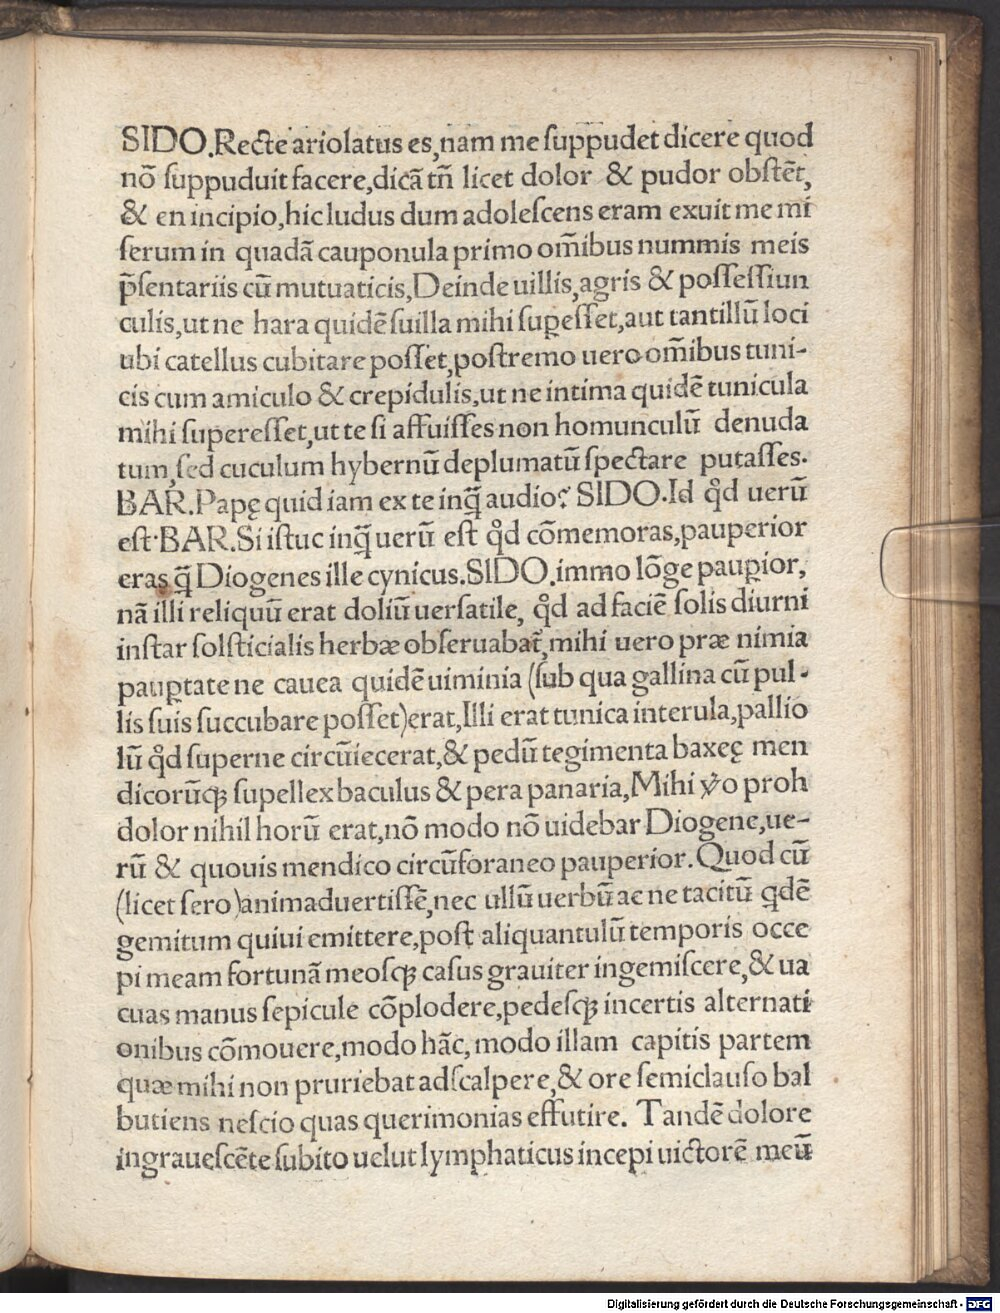 SIDO.Recte ariolatus es,nam me ſuppudet dicere quod
nō ſuppuduit facere,dicā tñ licet dolor & pudor obſtēt,
& en incipio,hic ludus dum adoleſcens eram exuit me mi
ſerum in quadā cauponula primo om̄ibus nummis meis
p̄ſentariis cū mutuaticis,Deinde uillis,agris & poſſeſſiun
culis,ut ne hara quidē ſuilla mihi ſuꝑeſſet,aut tantillū loci
ubi catellus cubitare poſſet,poſtremo uero om̄ibus tuni-
cis cum amiculo & crepidulis,ut ne intima quidē tunicula
mihi ſupereſſet,ut te ſi affuiſſes non homunculū denuda
tum,ſed cuculum hybernū deplumatū ſpectare putaſſes.
BAR.Papę quid iam ex te inꝗ̄ audio? SIDO.Id qd̄ uerū
eſt.BAR.Si iſtuc inꝗ̄ uerū eſt qd̄ cōmemoras,pauperior
eras ꝗ̄ Diogenes ille cynicus.SIDO.immo lōge pauꝑior,
nā illi reliquū erat doliū uerſatile, qd̄ ad faciē ſolis diurni
inſtar ſolſticialis herbæ obſeruabat̄,mihi uero præ nimia
pauꝑtate ne cauea quidē uiminia (ſub qua gallina cū pul-
lis ſuis ſuccubare poſſet)erat,Illi erat tunica interula,pallio
lū qd̄ ſuperne circūiecerat,& pedū tegimenta baxeę men
dicorūqꝫ ſupellex baculus & pera panaria,Mihi v̊o proh
dolor nihil horū erat,nō modo nō uidebar Diogene,ue-
rū & quouis mendico circūforaneo pauperior.Quod cū
(licet ſero)animaduertiſſē,nec ullū uerbū ac ne tacitū qdē
gemitum quiui emittere,poſt aliquantulū temporis occe
pi meam fortunā meoſqꝫ caſus grauiter ingemiſcere,& ua
cuas manus ſepicule cōplodere,pedeſqꝫ incertis alternati
onibus cōmouere,modo hāc,modo illam capitis partem
quæ mihi non pruriebat adſcalpere,& ore ſemiclauſo bal
butiens neſcio quas querimonias effutire. Tandē dolore
ingraueſcēte ſubito uelut lymphaticus incepi uictorē meū
Digitalisierung gefördert durch die Deutsche Forschungsgemeinschaft - DFG